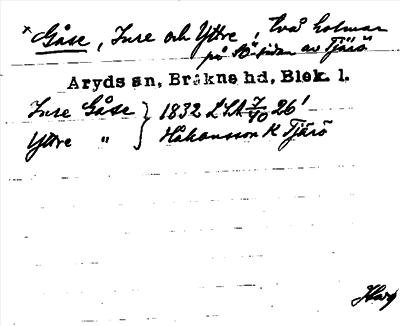 × Gåse, Inre och Yttre, två holmar
på SÖ-sidan av Tjärö
Aryds sn, Bräkne hd, Blek. l.
Inre Gåse } 1832 LSA 7/40 26'
Yttre " } Håkansson K Tjärö